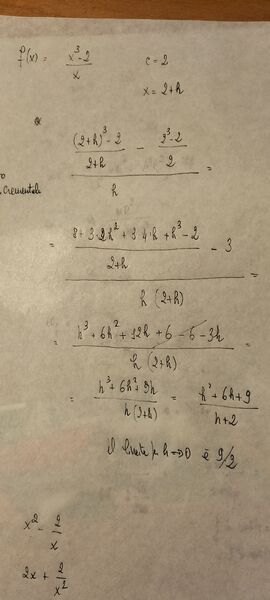 f(x) = (x³-2)/x   c = 2
x = 2+h
(((2+h)³-2)/(2+h) - (2³-2)/2)/h =
crementale
= ((8+3·2h²+3·4·h+h³-2)/(2+h) - 3)/(h(2+h)) =
= (h³+6h²+12h+6-6-3h)/(h(2+h)) =
= (h³+6h²+9h)/(h(2+h)) = (h²+6h+9)/(h+2)
il limite per h→0 è 9/2
x² - 2/x
2x + 2/x²